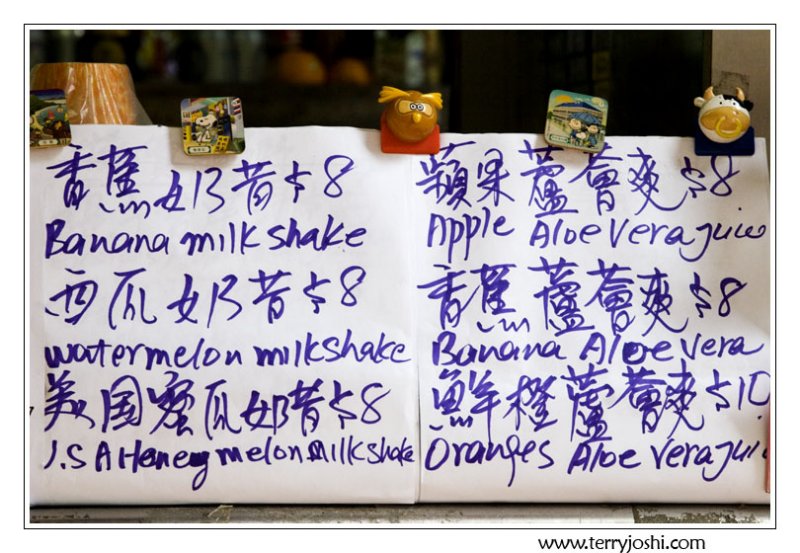 香蕉奶昔$8
Banana milk shake
西瓜奶昔$8
watermelon milkshake
美国蜜瓜奶昔$8
.S A Honey melon milk shake
蘋果蘆薈爽$8
Apple Aloe Vera juice
香蕉蘆薈爽$8
Banana Aloe Vera
鮮橙蘆薈爽$10
Oranges Aloe Vera jui
www.terryjoshi.com